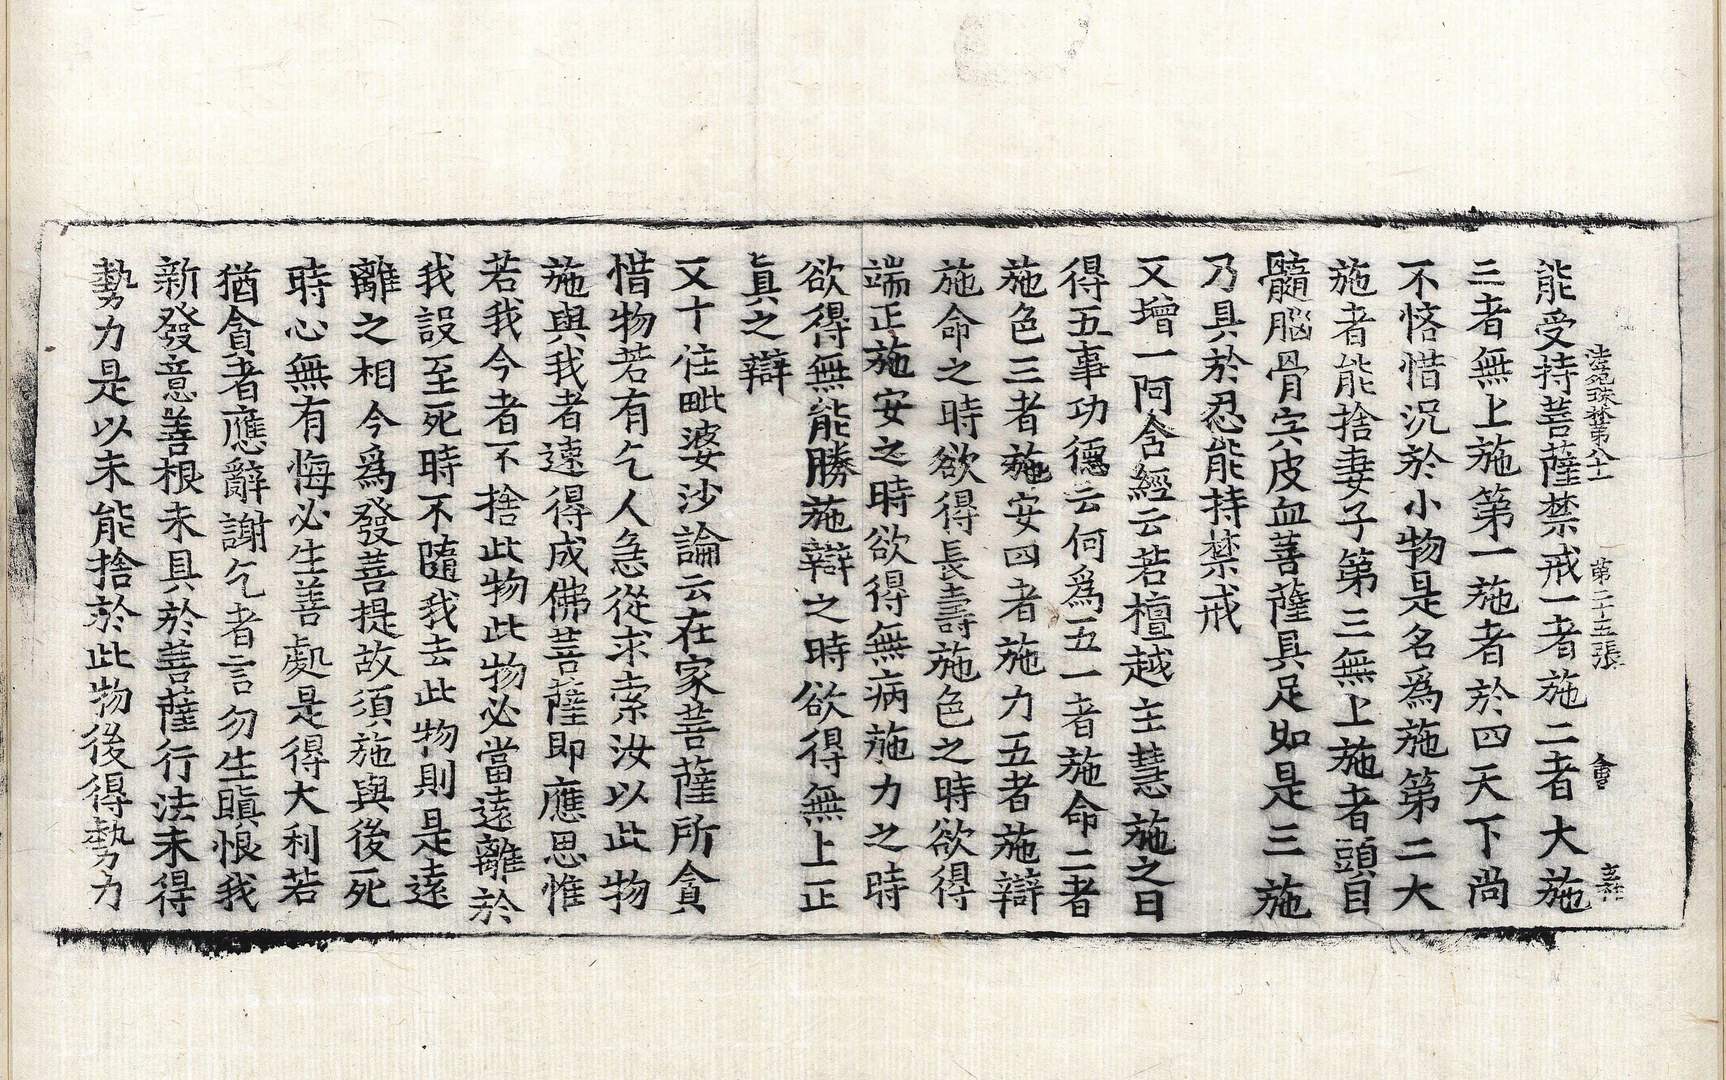 法苑珠林第八十一 第二十五張 會
能受持菩薩禁戒一者施二者大施
三者無上施第一施者於四天下尚
不悋惜況於小物是名爲施第二大
施者能捨妻子第三無上施者頭目
髓腦骨宍皮血菩薩具足如是三施
乃具於忍能持禁戒
又增一阿含經云若檀越主慧施之日
得五事功德云何爲五一者施命二者
施色三者施安四者施力五者施辯
施命之時欲得長壽施色之時欲得
端正施安之時欲得無病施力之時
欲得無能勝施辯之時欲得無上正
眞之辯
又十住毗婆沙論云在家菩薩所貪
惜物若有乞人急從求索汝以此物
施與我者速得成佛菩薩即應思惟
若我今者不捨此物此物必當遠離於
我設至死時不隨我去此物則是遠
離之相今爲發菩提故須施與後死
時心無有悔必生善處是得大利若
猶貪者應辭謝乞者言勿生瞋恨我
新發意善根未具於菩薩行法未得
勢力是以未能捨於此物後得勢力